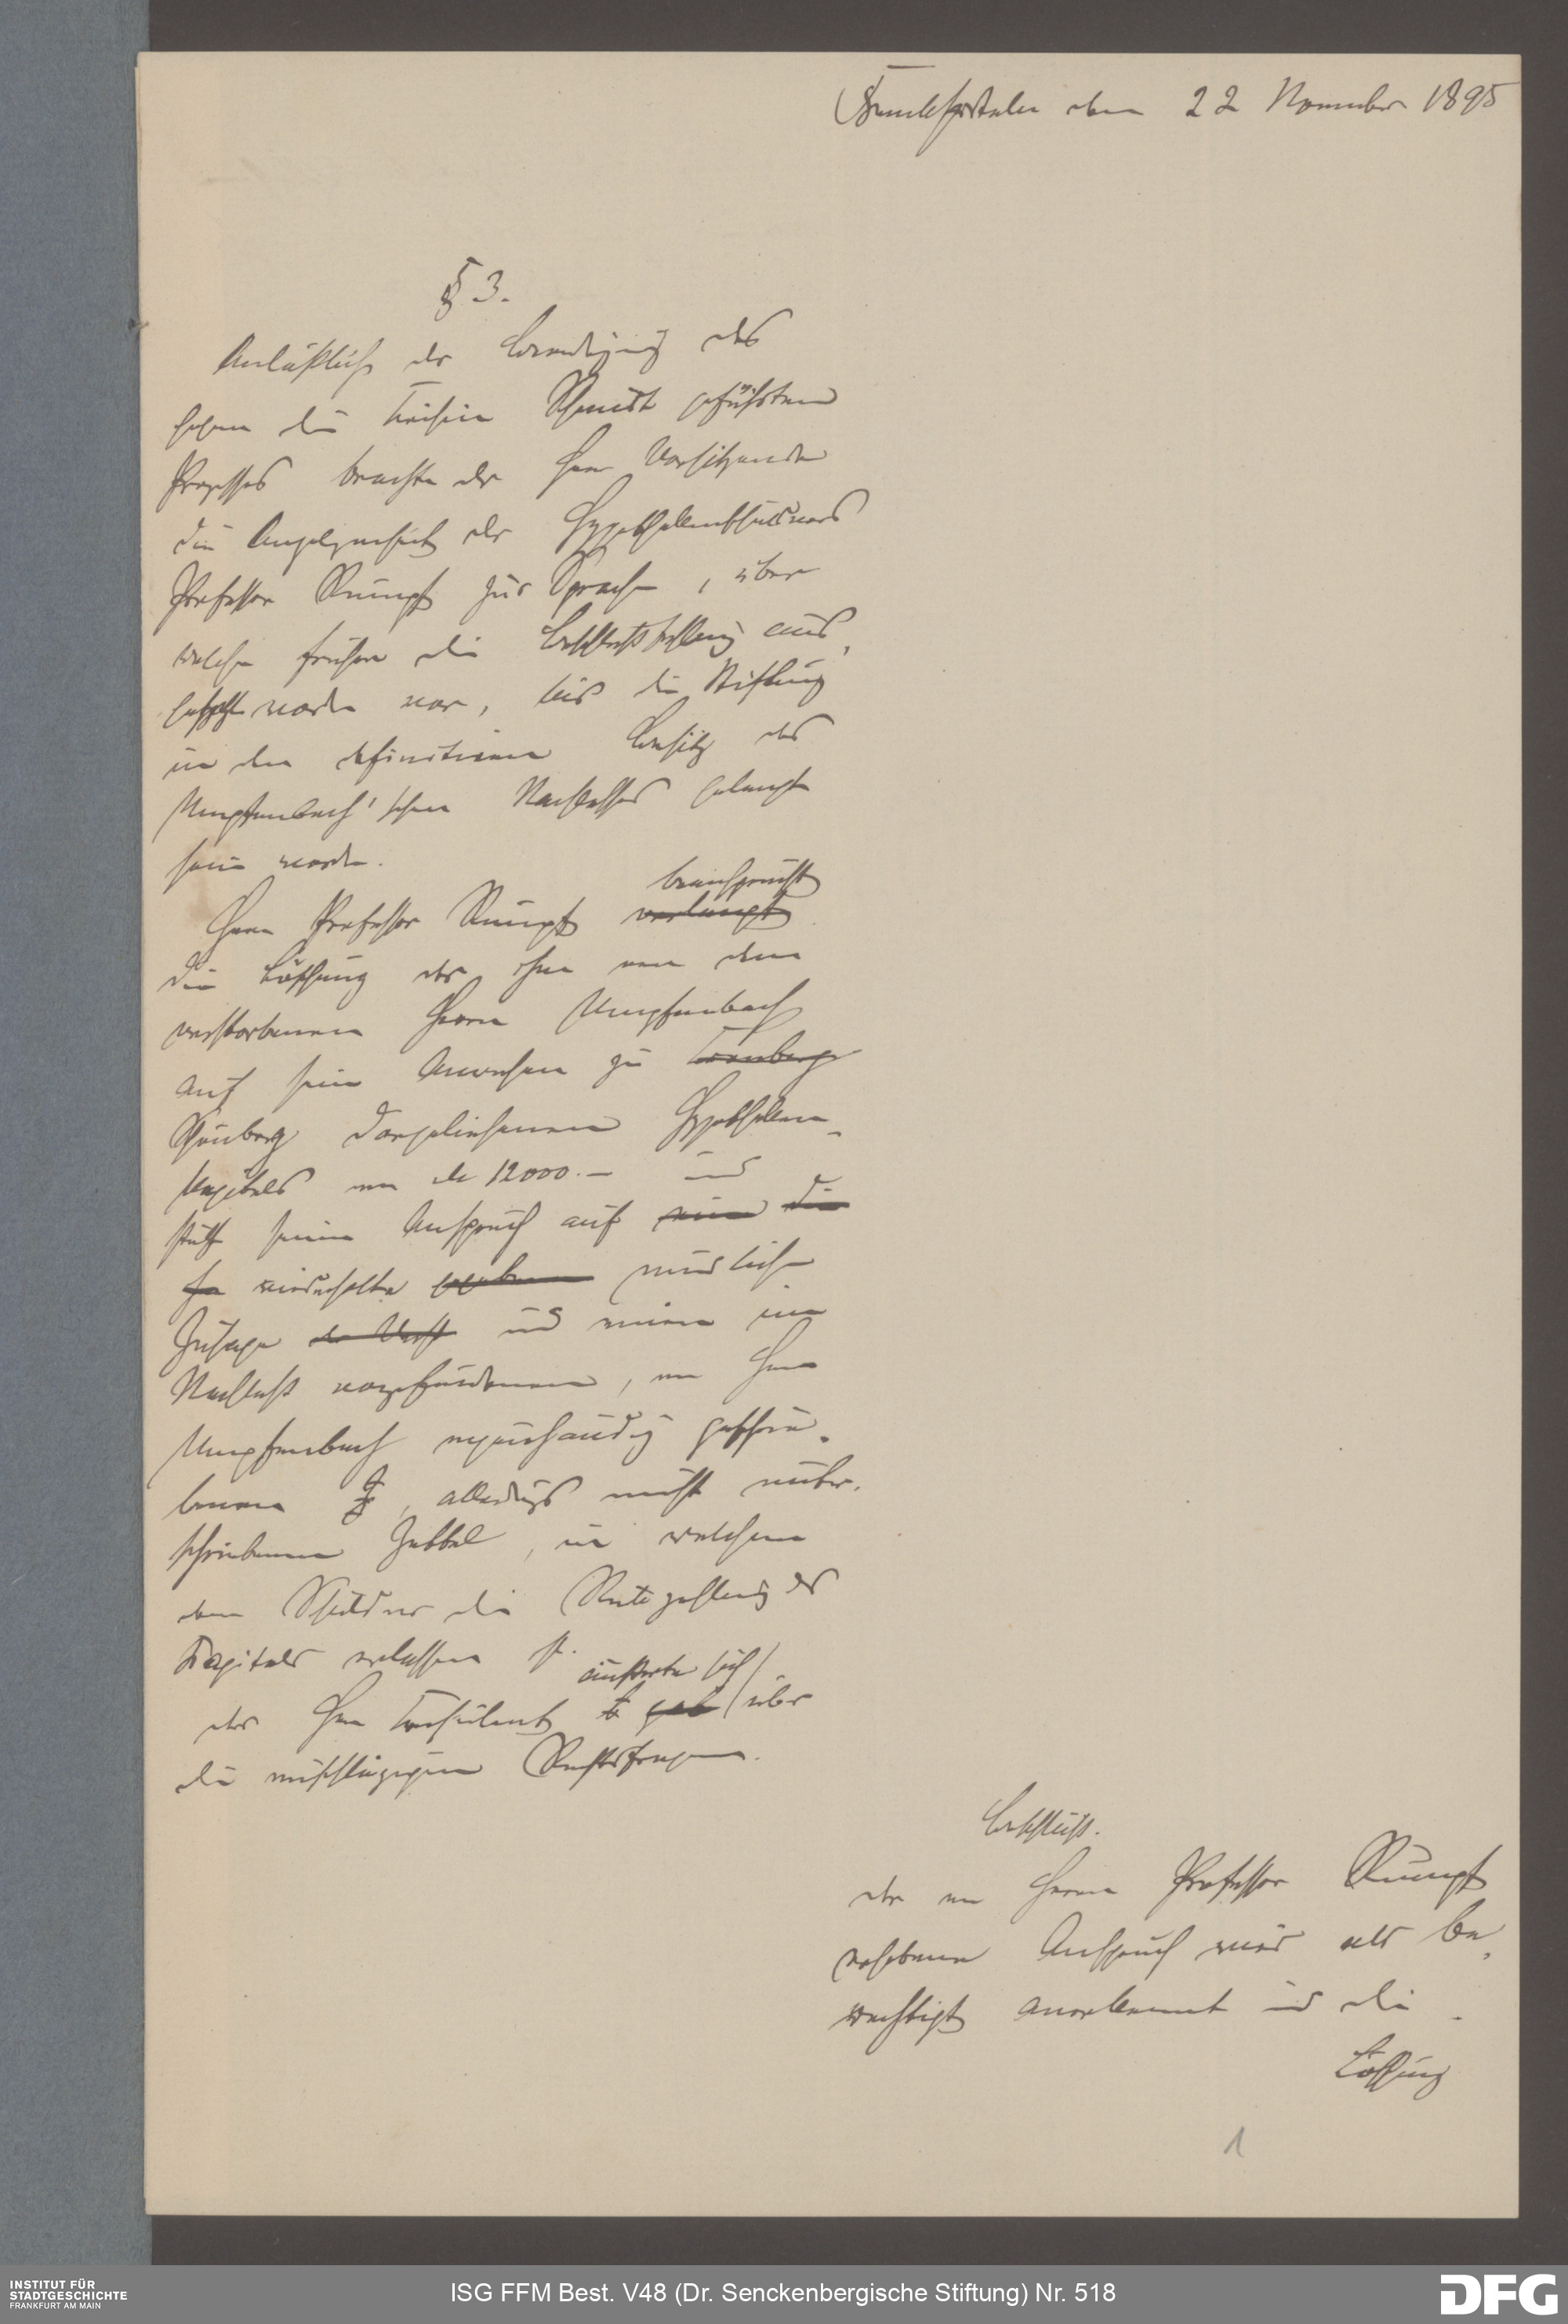 Frankfurt a/M den 22 November 1895
§ 3.
Anläßlich der Beendigung des
gegen die Luise Schmidt geführten
Prozesses brachte der Herr Vorsitzende
die Angelegenheit des Hypothekenschuldners
Professor Rumpf zur Sprache, über
welche früher die Beschlußfassung aus-
gesetzt worden war, bis die Stiftung
in den definitiven Besitz des
Umpfenbach'schen Nachlasses gelangt
sein werde.
beansprucht
Herr Professor Rumpf verlangt
die Löschung des ihm von dem
verstorbenen Herrn Umpfenbach
auf sein Anwesen zu Cronberg
Schönberg dargeliehenen Hypotheken-
kapitals von M 12000.— und
stützt seinen Anspruch auf eine die
wiederholte mündliche
Zusage und einen im
Nachlaß vorgefundenen, von Herrn
Umpfenbach eigenhändig geschrie-
benen, allerdings nicht unter-
schriebenen Zettel, in welchem
dem Schuldner die Rückzahlung des
Kapitals erlassen ist.
äußerte sich
der Herr Consulent gab über
die einschlägigen Rechtsfragen.
Beschluß.
Der von Herrn Professor Rumpf
erhobene Anspruch wird als be-
rechtigt anerkannt und die
Löschung
1
INSTITUT FÜR
STADTGESCHICHTE
FRANKFURT AM MAIN
ISG FFM Best. V48 (Dr. Senckenbergische Stiftung) Nr. 518
DFG